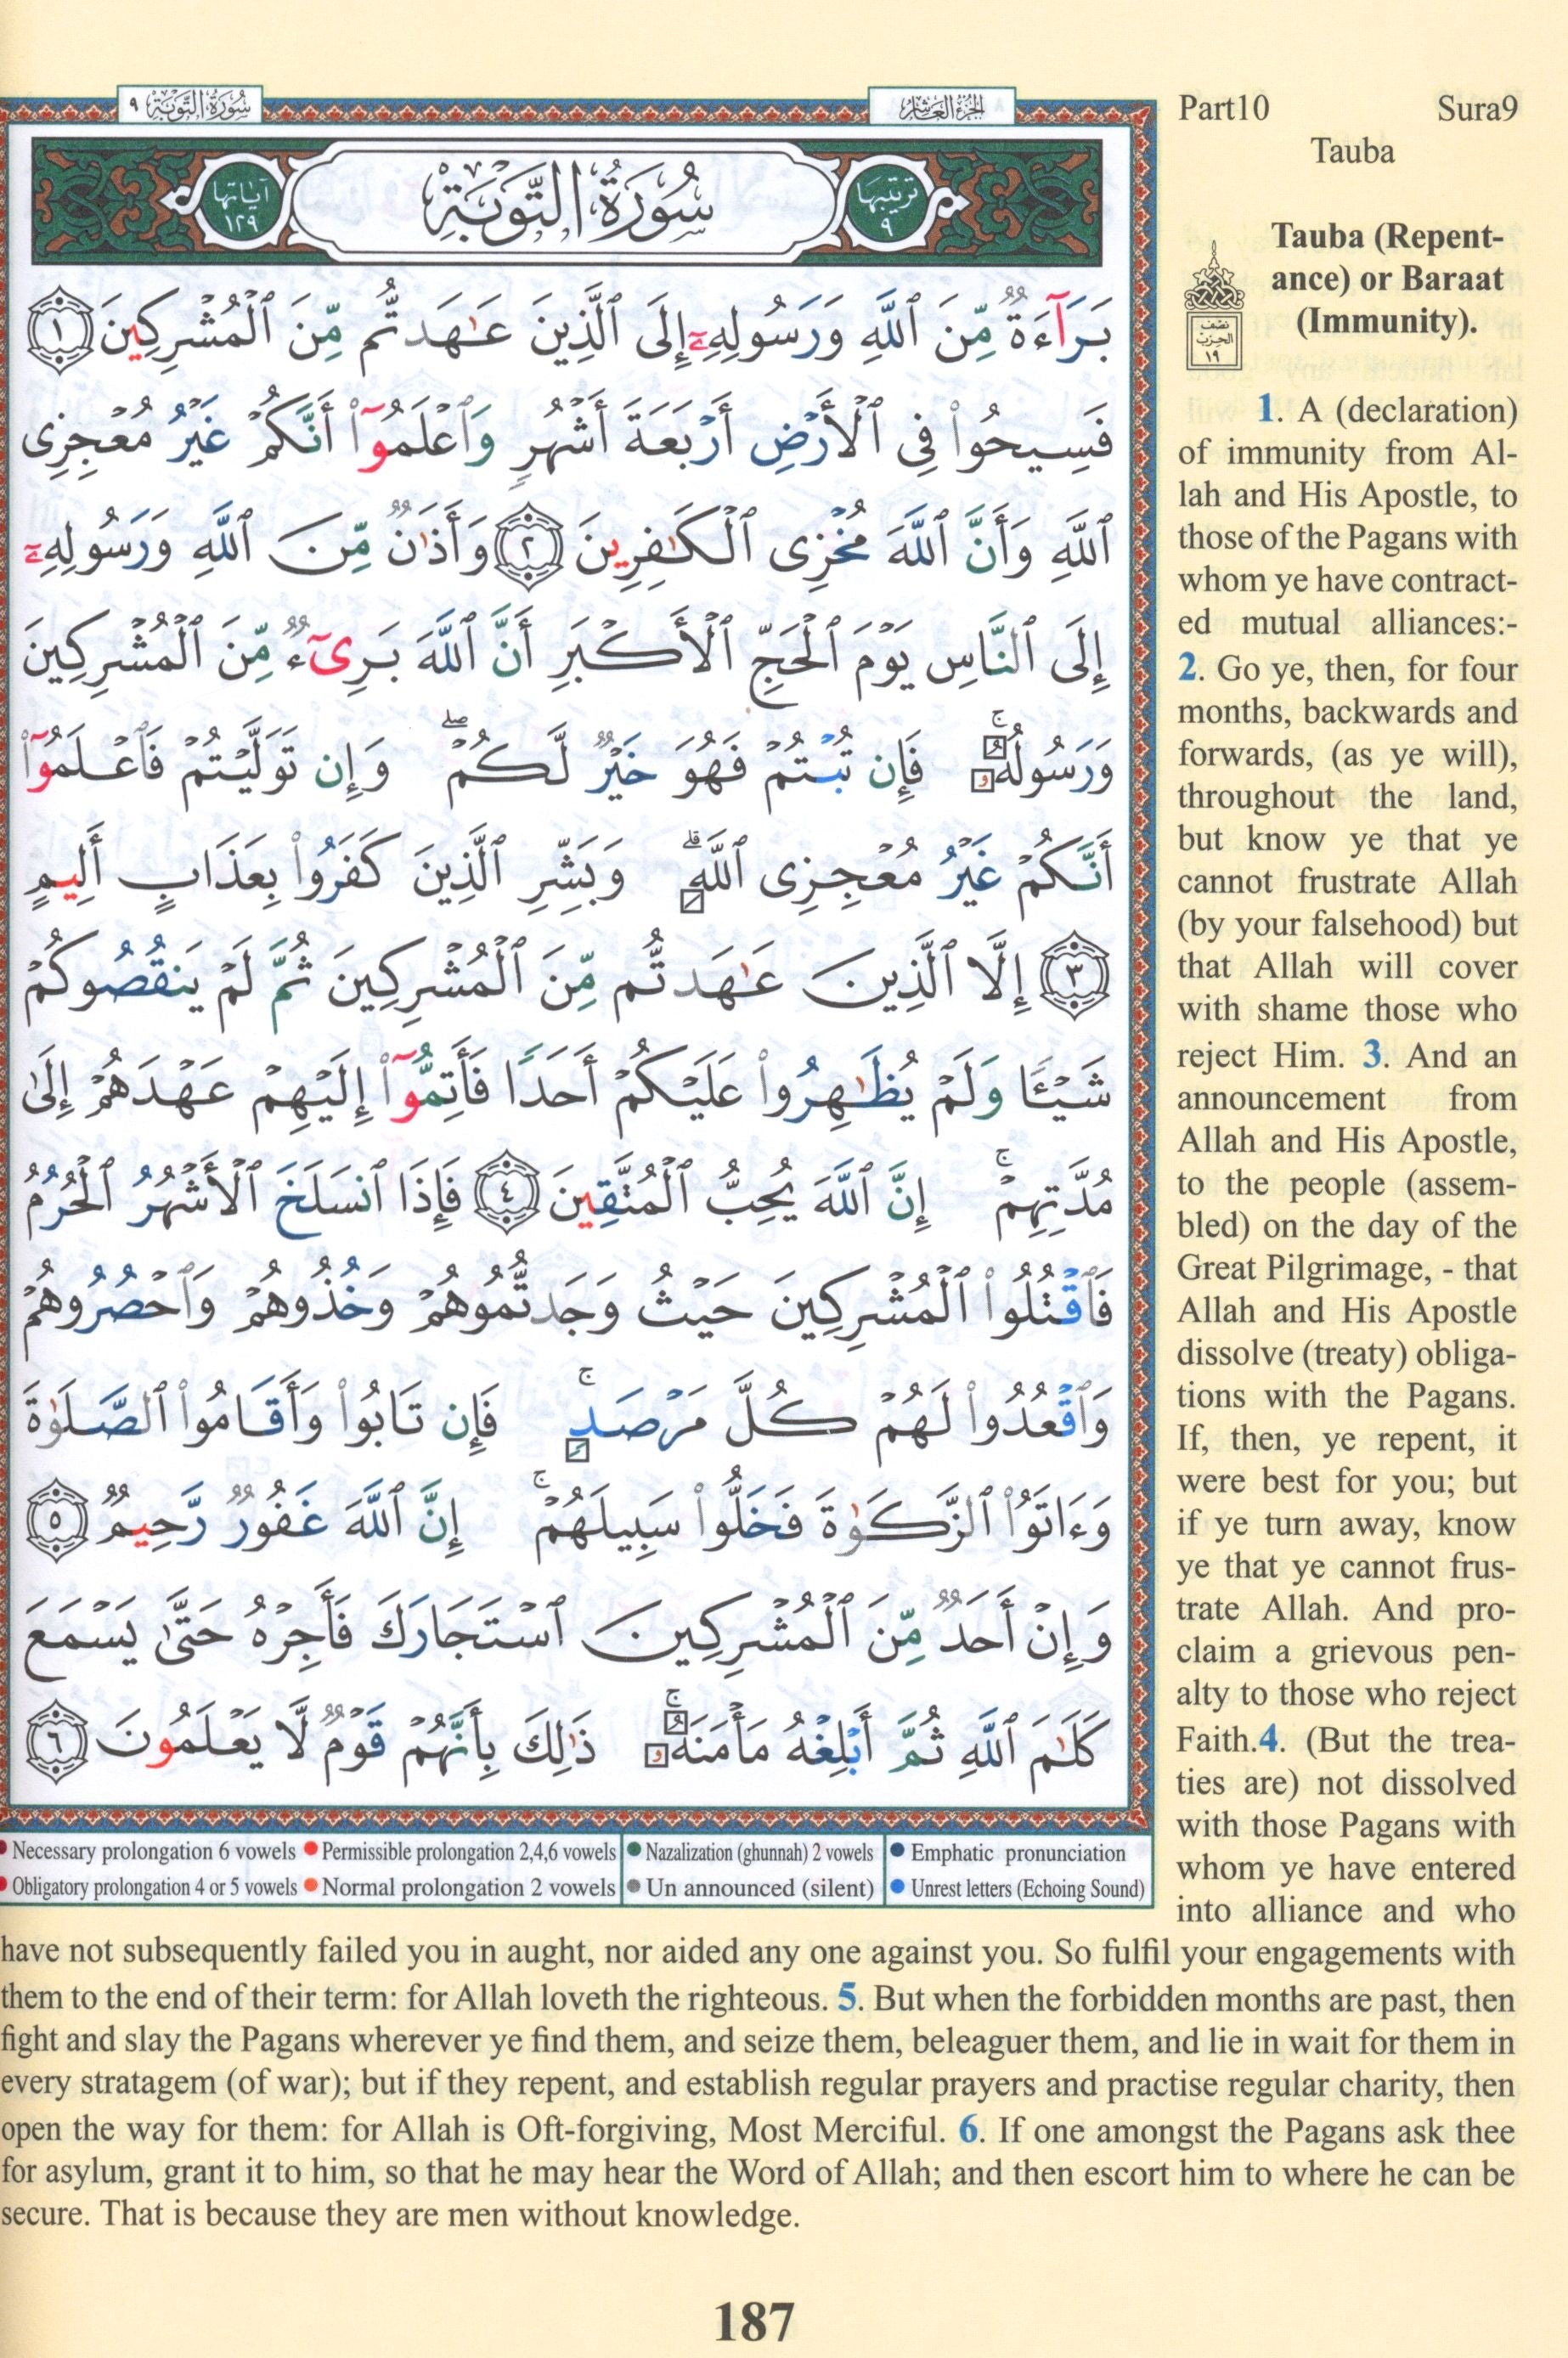 سُورَةُ التَّوْبَةِ ٩
الجُزْءُ العَاشِرُ
Part10 Sura9
Tauba
آيَاتُهَا ١٢٩
سُورَةُ التَّوْبَةِ
تَرْتِيبُهَا ٩
بَرَآءَةٌ مِّنَ ٱللَّهِ وَرَسُولِهِۦٓ إِلَى ٱلَّذِينَ عَٰهَدتُّم مِّنَ ٱلْمُشْرِكِينَ ١
فَسِيحُوا۟ فِى ٱلْأَرْضِ أَرْبَعَةَ أَشْهُرٍ وَٱعْلَمُوٓا۟ أَنَّكُمْ غَيْرُ مُعْجِزِى
ٱللَّهِ وَأَنَّ ٱللَّهَ مُخْزِى ٱلْكَٰفِرِينَ ٢ وَأَذَٰنٌ مِّنَ ٱللَّهِ وَرَسُولِهِۦٓ
إِلَى ٱلنَّاسِ يَوْمَ ٱلْحَجِّ ٱلْأَكْبَرِ أَنَّ ٱللَّهَ بَرِىٓءٌ مِّنَ ٱلْمُشْرِكِينَ
وَرَسُولُهُۥ ۚ فَإِن تُبْتُمْ فَهُوَ خَيْرٌ لَّكُمْ ۖ وَإِن تَوَلَّيْتُمْ فَٱعْلَمُوٓا۟
أَنَّكُمْ غَيْرُ مُعْجِزِى ٱللَّهِ ۗ وَبَشِّرِ ٱلَّذِينَ كَفَرُوا۟ بِعَذَابٍ أَلِيمٍ
٣ إِلَّا ٱلَّذِينَ عَٰهَدتُّم مِّنَ ٱلْمُشْرِكِينَ ثُمَّ لَمْ يَنقُصُوكُمْ
شَيْـًٔا وَلَمْ يُظَٰهِرُوا۟ عَلَيْكُمْ أَحَدًا فَأَتِمُّوٓا۟ إِلَيْهِمْ عَهْدَهُمْ إِلَىٰ
مُدَّتِهِمْ ۚ إِنَّ ٱللَّهَ يُحِبُّ ٱلْمُتَّقِينَ ٤ فَإِذَا ٱنسَلَخَ ٱلْأَشْهُرُ ٱلْحُرُمُ
فَٱقْتُلُوا۟ ٱلْمُشْرِكِينَ حَيْثُ وَجَدتُّمُوهُمْ وَخُذُوهُمْ وَٱحْصُرُوهُمْ
وَٱقْعُدُوا۟ لَهُمْ كُلَّ مَرْصَدٍ ۚ فَإِن تَابُوا۟ وَأَقَامُوا۟ ٱلصَّلَوٰةَ
وَءَاتَوُا۟ ٱلزَّكَوٰةَ فَخَلُّوا۟ سَبِيلَهُمْ ۚ إِنَّ ٱللَّهَ غَفُورٌ رَّحِيمٌ ٥
وَإِنْ أَحَدٌ مِّنَ ٱلْمُشْرِكِينَ ٱسْتَجَارَكَ فَأَجِرْهُ حَتَّىٰ يَسْمَعَ
كَلَٰمَ ٱللَّهِ ثُمَّ أَبْلِغْهُ مَأْمَنَهُۥ ۚ ذَٰلِكَ بِأَنَّهُمْ قَوْمٌ لَّا يَعْلَمُونَ ٦
Necessary prolongation 6 vowels Permissible prolongation 2,4,6 vowels Nazalization (ghunnah) 2 vowels Emphatic pronunciation
Obligatory prolongation 4 or 5 vowels Normal prolongation 2 vowels Un announced (silent) Unrest letters (Echoing Sound)
نصف
الحزب
١٩
Tauba (Repent-
ance) or Baraat
(Immunity).
1. A (declaration)
of immunity from Al-
lah and His Apostle, to
those of the Pagans with
whom ye have contract-
ed mutual alliances:-
2. Go ye, then, for four
months, backwards and
forwards, (as ye will),
throughout the land,
but know ye that ye
cannot frustrate Allah
(by your falsehood) but
that Allah will cover
with shame those who
reject Him. 3. And an
announcement from
Allah and His Apostle,
to the people (assem-
bled) on the day of the
Great Pilgrimage, - that
Allah and His Apostle
dissolve (treaty) obliga-
tions with the Pagans.
If, then, ye repent, it
were best for you; but
if ye turn away, know
ye that ye cannot frus-
trate Allah. And pro-
claim a grievous pen-
alty to those who reject
Faith.4. (But the trea-
ties are) not dissolved
with those Pagans with
whom ye have entered
into alliance and who
have not subsequently failed you in aught, nor aided any one against you. So fulfil your engagements with
them to the end of their term: for Allah loveth the righteous. 5. But when the forbidden months are past, then
fight and slay the Pagans wherever ye find them, and seize them, beleaguer them, and lie in wait for them in
every stratagem (of war); but if they repent, and establish regular prayers and practise regular charity, then
open the way for them: for Allah is Oft-forgiving, Most Merciful. 6. If one amongst the Pagans ask thee
for asylum, grant it to him, so that he may hear the Word of Allah; and then escort him to where he can be
secure. That is because they are men without knowledge.
187